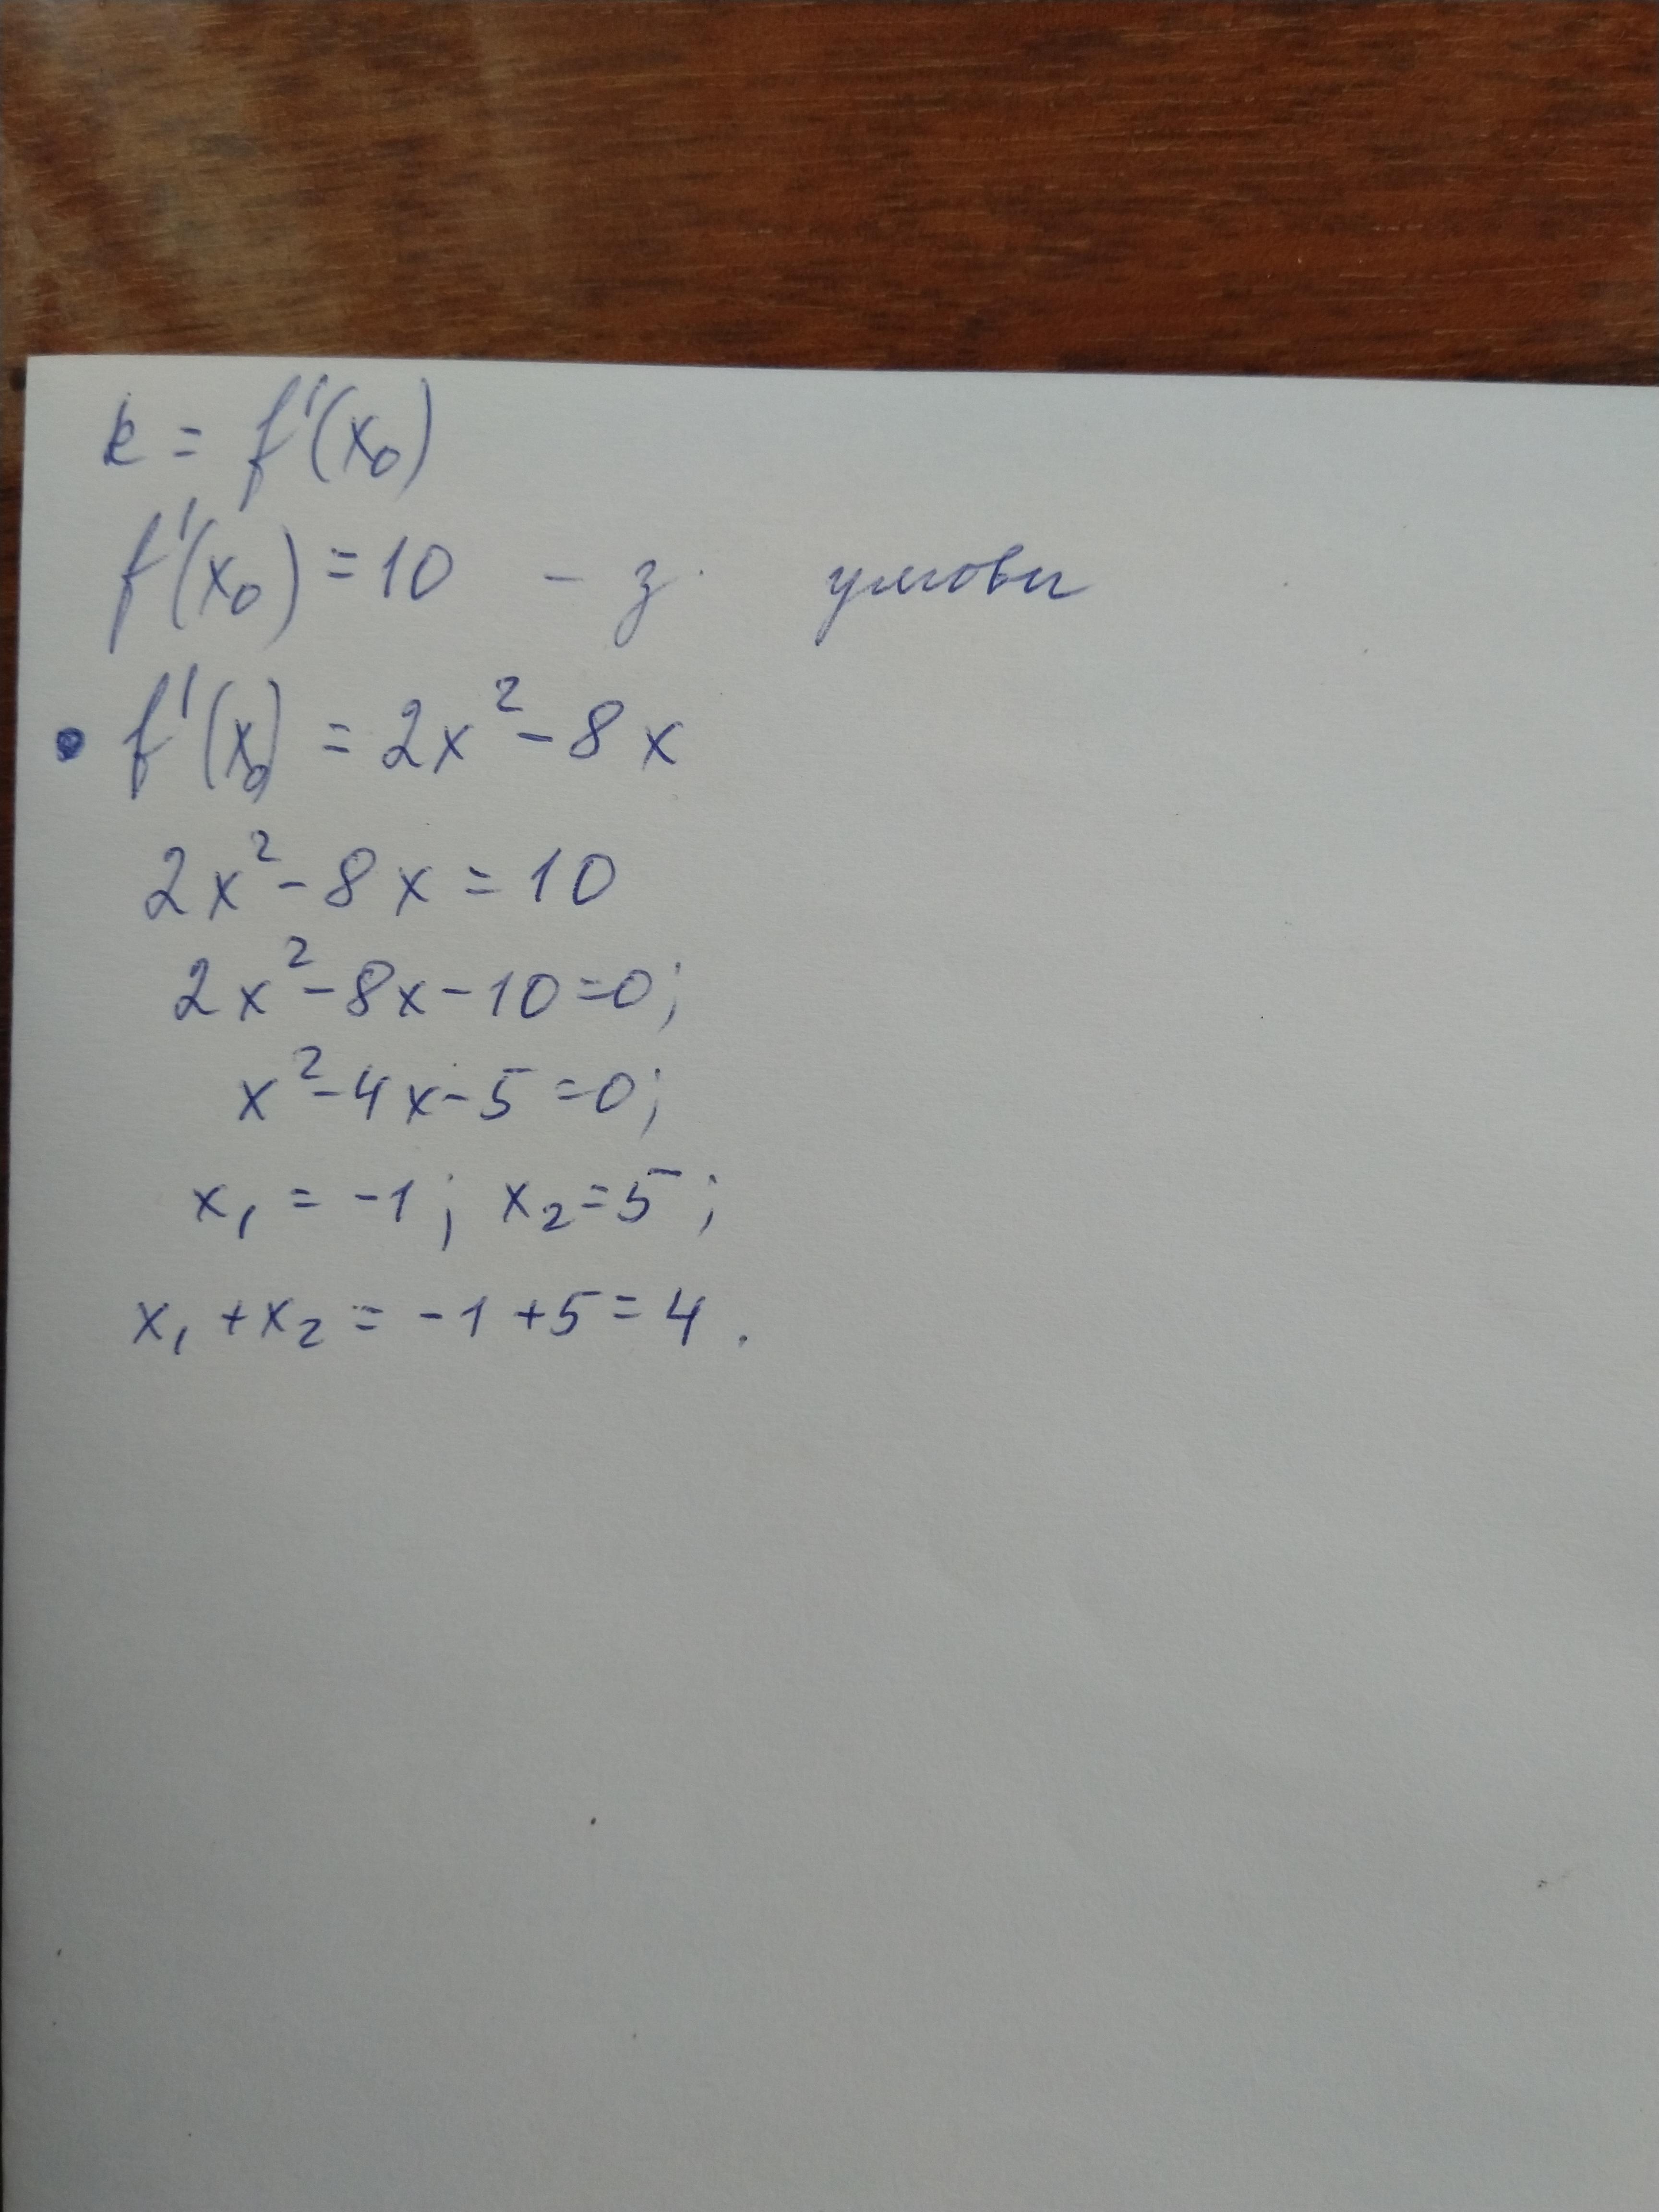 k = f'(x₀)
f'(x₀) = 10 - з умови
• f'(x₀) = 2x² - 8x
2x² - 8x = 10
2x² - 8x - 10 = 0;
x² - 4x - 5 = 0;
x₁ = -1; x₂ = 5;
x₁ + x₂ = -1 + 5 = 4.